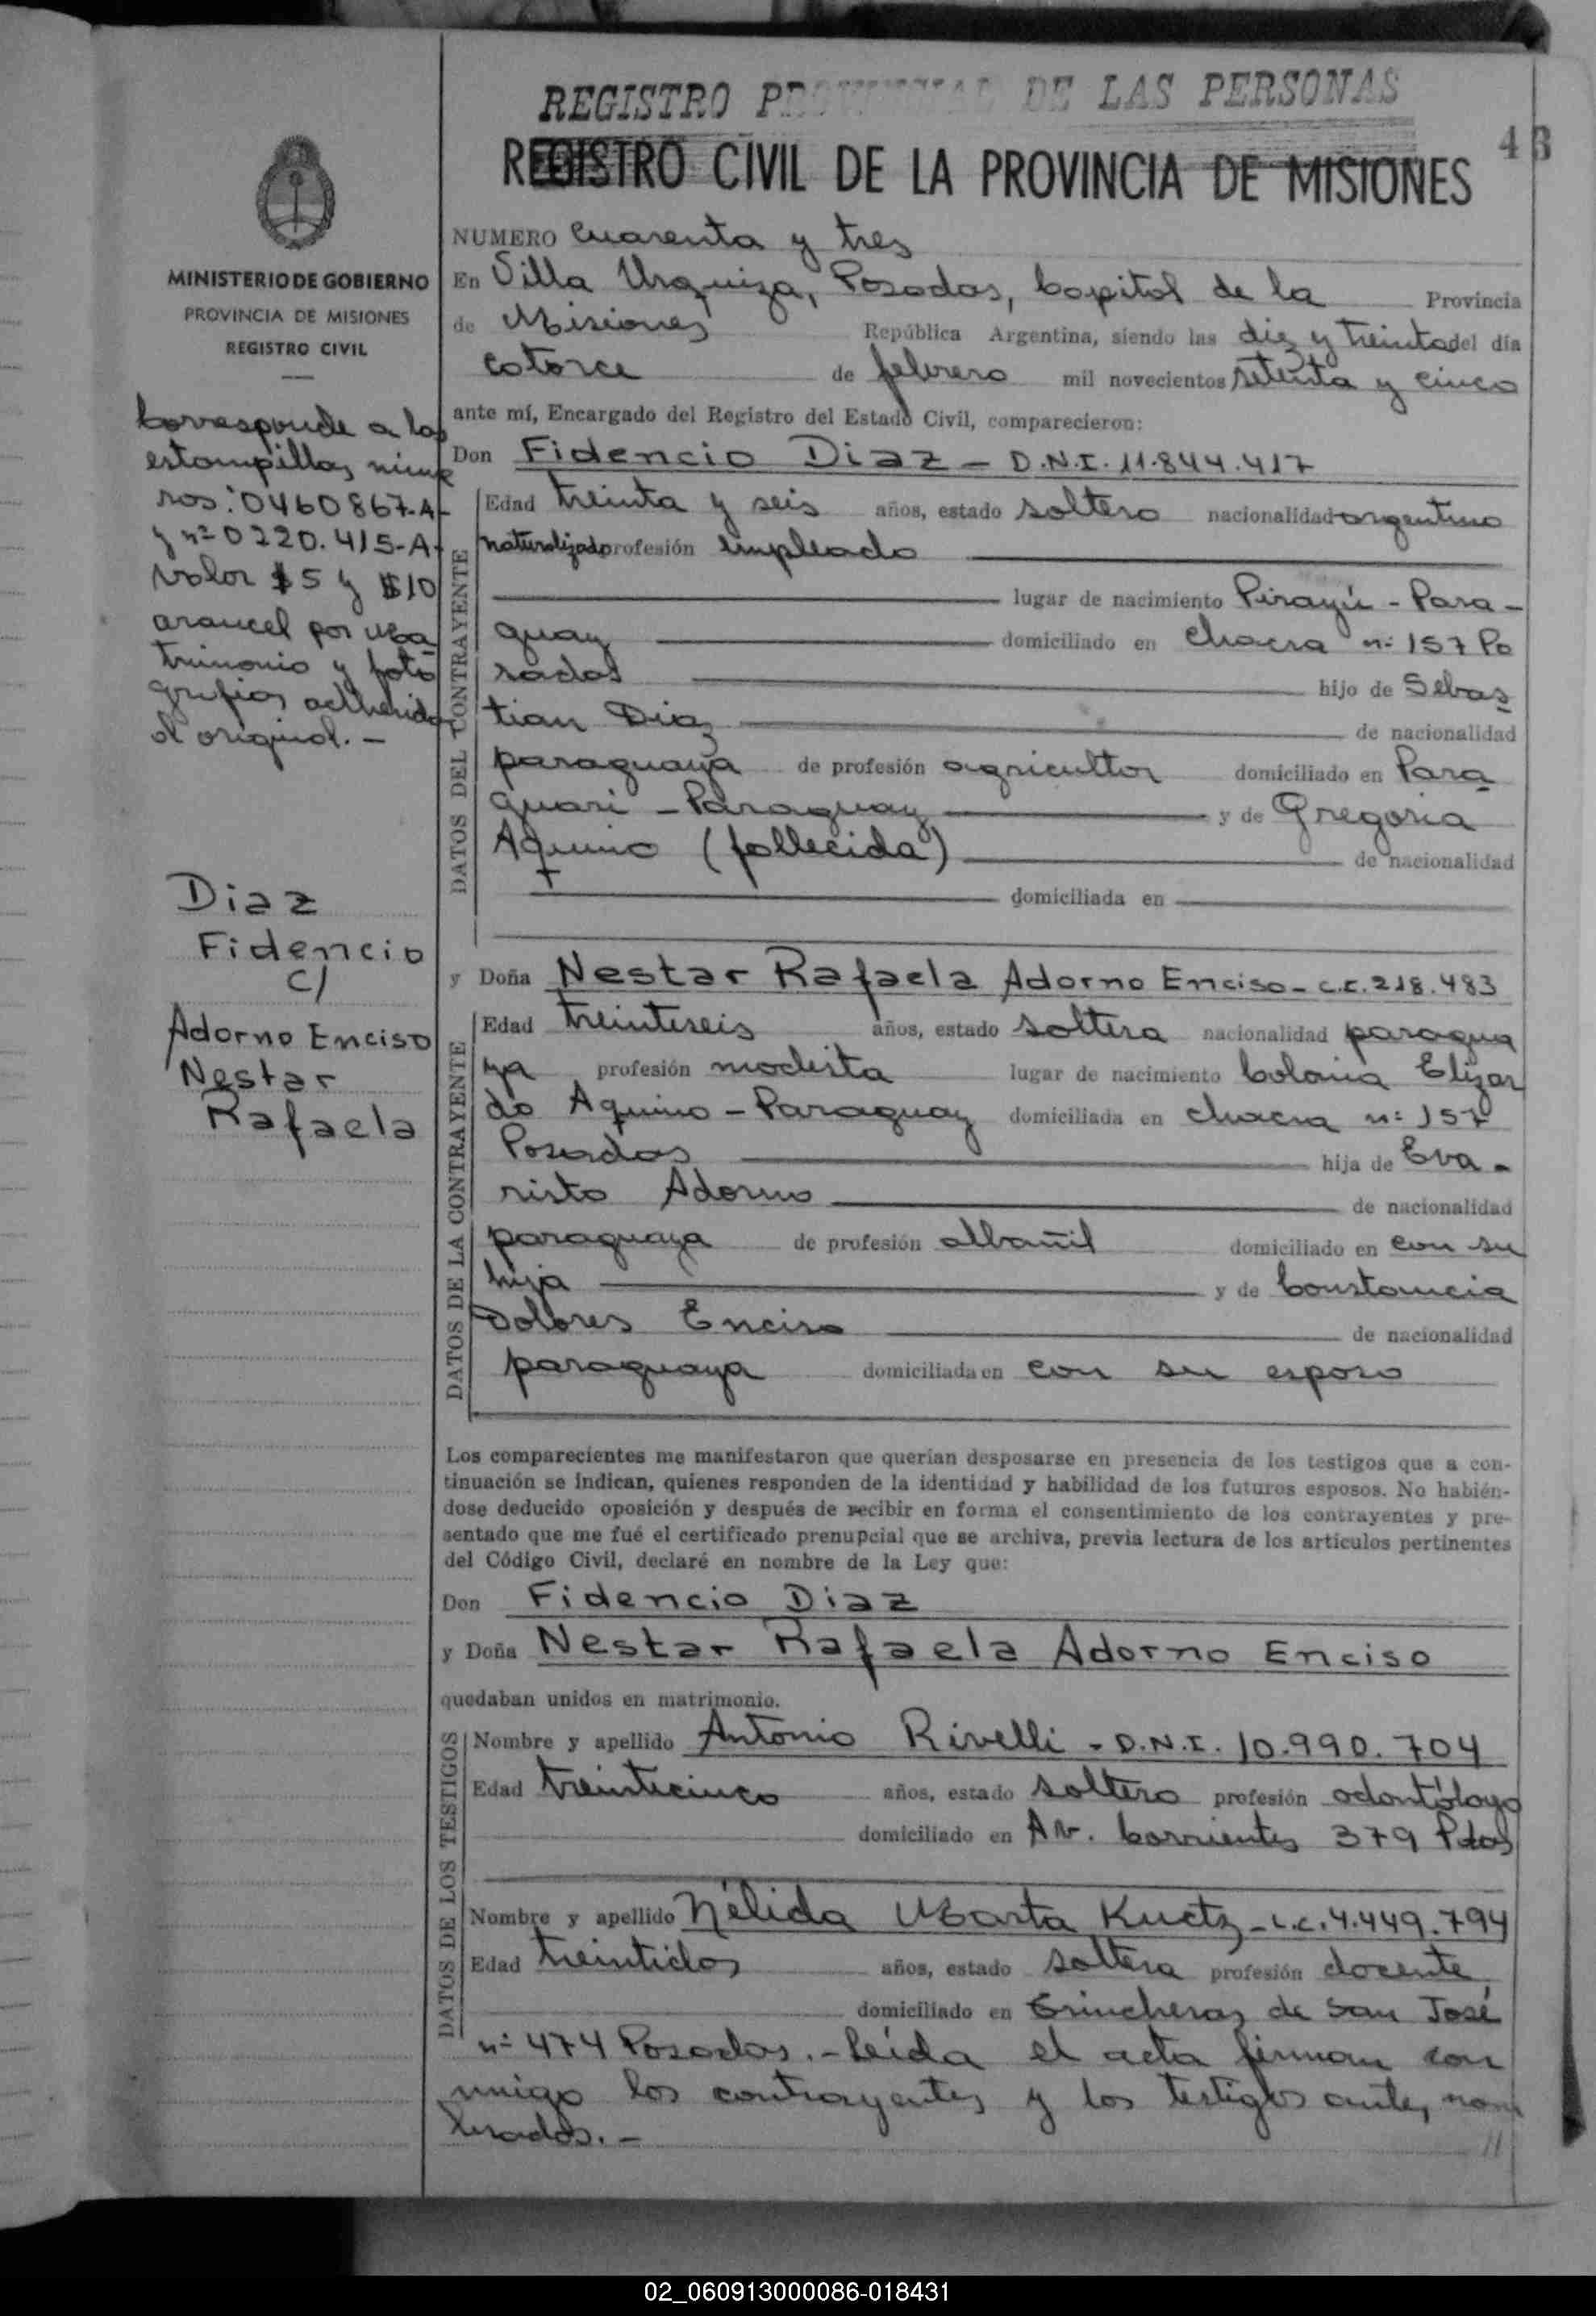 REGISTRO PROVINCIAL DE LAS PERSONAS
REGISTRO CIVIL DE LA PROVINCIA DE MISIONES
43
MINISTERIO DE GOBIERNO
PROVINCIA DE MISIONES
REGISTRO CIVIL
Corresponde a las
estampillas núme
ros: 0460867-A-
y nº 0220.415-A-
valor $5 y $10
arancel por Ma
trimonio y foto
grafías adherido
al original. -
Diaz
Fidencio
c/
Adorno Enciso
Nestar
Rafaela
NUMERO Cuarenta y tres
En Villa Urquiza, Posadas, Capital de la Provincia
de Misiones República Argentina, siendo las diez y treinta del día
catorce de febrero mil novecientos setenta y cinco
ante mí, Encargado del Registro del Estado Civil, comparecieron:
Don Fidencio Diaz - D.N.I. 11.844.417
DATOS DEL CONTRAYENTE
Edad treinta y seis años, estado soltero nacionalidad argentino
naturalizado profesión empleado
lugar de nacimiento Pirayú - Para -
guay domiciliado en chacra nº 157 Po
sadas hijo de Sebas
tian Diaz de nacionalidad
paraguaya de profesión agricultor domiciliado en Para
guari - Paraguay y de Gregoria
Aquino (fallecida) de nacionalidad
domiciliada en
y Doña Nestar Rafaela Adorno Enciso - C.I. 218.483
DATOS DE LA CONTRAYENTE
Edad treintiseis años, estado soltera nacionalidad paragua
ya profesión modista lugar de nacimiento Colonia Elizar
do Aquino - Paraguay domiciliada en chacra nº 157
Posadas hija de Eva -
risto Adorno de nacionalidad
paraguaya de profesión albañil domiciliado en con su
hija y de Constancia
Dolores Enciso de nacionalidad
paraguaya domiciliada en con su esposo
Los comparecientes me manifestaron que querían desposarse en presencia de los testigos que a con-
tinuación se indican, quienes responden de la identidad y habilidad de los futuros esposos. No habién-
dose deducido oposición y después de recibir en forma el consentimiento de los contrayentes y pre-
sentado que me fué el certificado prenupcial que se archiva, previa lectura de los artículos pertinentes
del Código Civil, declaré en nombre de la Ley que:
Don Fidencio Diaz
y Doña Nestar Rafaela Adorno Enciso
quedaban unidos en matrimonio.
DATOS DE LOS TESTIGOS
Nombre y apellido Antonio Rivelli - D.N.I. 10.990.704
Edad treinticinco años, estado soltero profesión odontólogo
domiciliado en Av. Corrientes 379 Pdas
Nombre y apellido Nélida Marta Kuetz - L.C. 4.449.794
Edad treintidos años, estado soltera profesión docente
domiciliado en Trincheras de San José
nº 474 Posadas. - Leída el acta firman con
migo los contrayentes y los testigos antes nom
brados. -
//
02_060913000086-018431